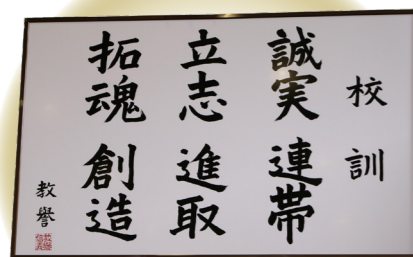 校訓
誠実 連帯
立志 進取
拓魂 創造
教誉